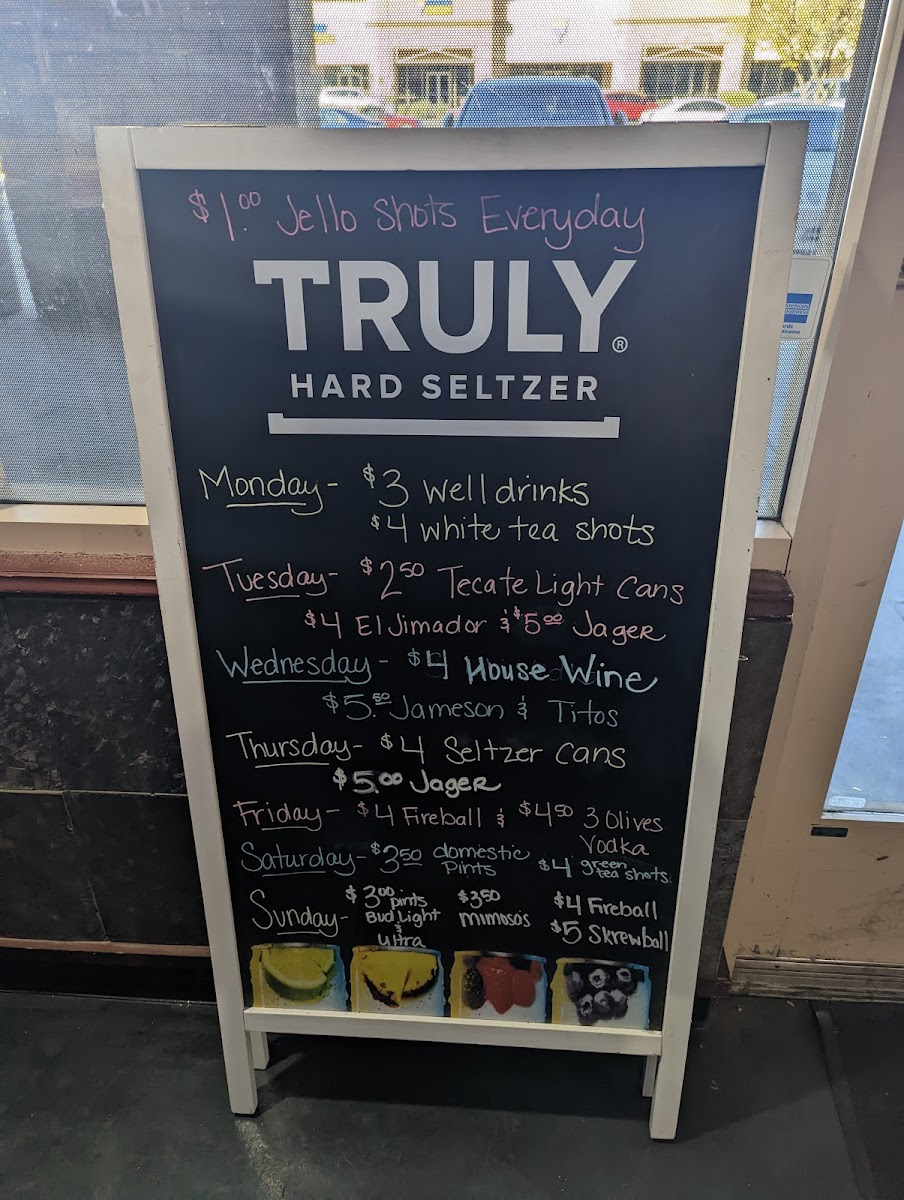 $1.00 Jello Shots Everyday
TRULY®
HARD SELTZER
Monday- $3 well drinks
$4 white tea shots
Tuesday- $2.50 Tecate Light Cans
$4 El Jimador & $5.00 Jager
Wednesday- $4 House Wine
$5.50 Jameson & Titos
Thursday- $4 Seltzer Cans
$5.00 Jager
Friday- $4 Fireball & $4.50 3 Olives
Vodka
Saturday- $3.50 domestic Pints $4 green tea shots
Sunday- $3.00 pints Bud Light & Ultra $3.50 mimosas $4 Fireball
$5 Skrewball